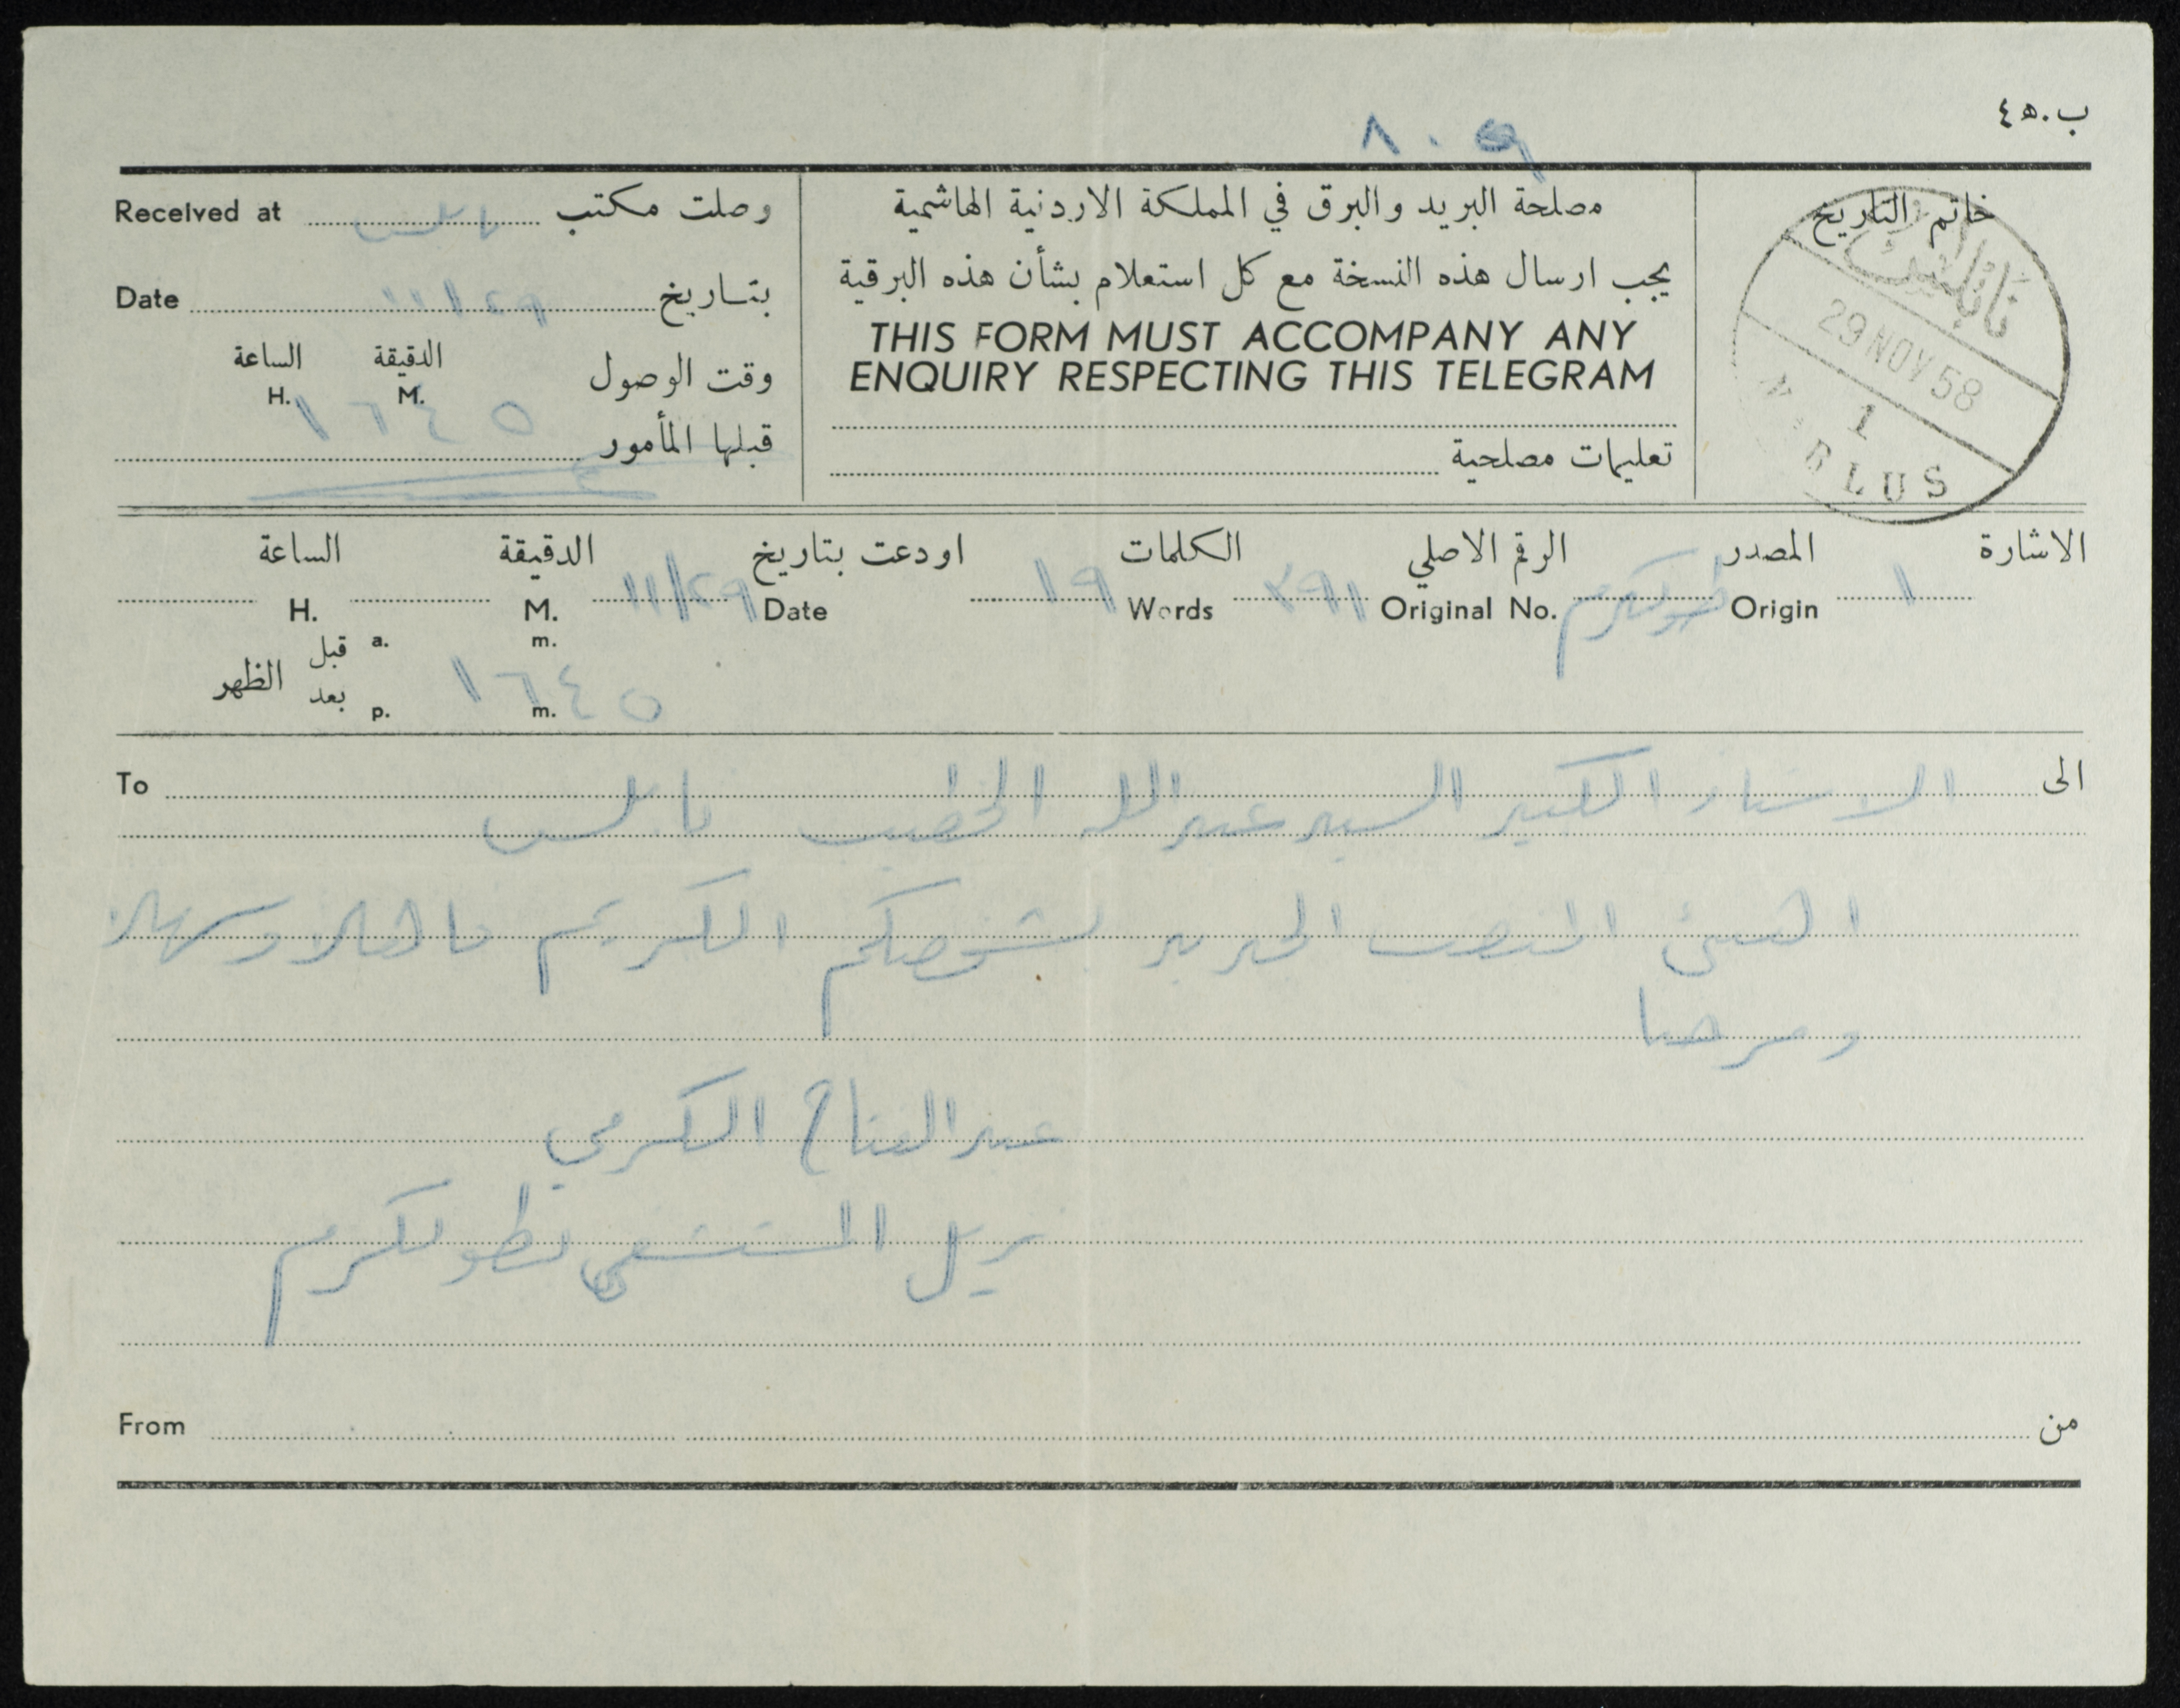 ب.ه٤
٨٠٩
خاتم التاريخ
نابلس
29 NOV 58
1
NABLUS
مصلحة البريد والبرق في المملكة الاردنية الهاشمية
يجب ارسال هذه النسخة مع كل استعلام بشأن هذه البرقية
THIS FORM MUST ACCOMPANY ANY
ENQUIRY RESPECTING THIS TELEGRAM
تعليمات مصلحية
Received at نابلس وصلت مكتب
Date ١١/٢٩ بتاريخ
الساعة الدقيقة وقت الوصول
H. M.
١٦٤٥
قبلها المأمور
الاشارة المصدر الرقم الاصلي الكلمات اودعت بتاريخ الدقيقة الساعة
١ Origin طولكرم Original No. ٣٩١ Words ١٩ Date ١١/٢٩ M. H.
قبل a. m.
الظهر
بعد p. m.
١٦٤٥
To الى
الاستاذ الكبير السيد عبدالله الخطيب نابلس
المنصب الجديد لشخصكم الكريم فاهلا وسهلا
ومرحبا
عبدالفتاح الكرمي
نزيل المستشفى بطولكرم
From من